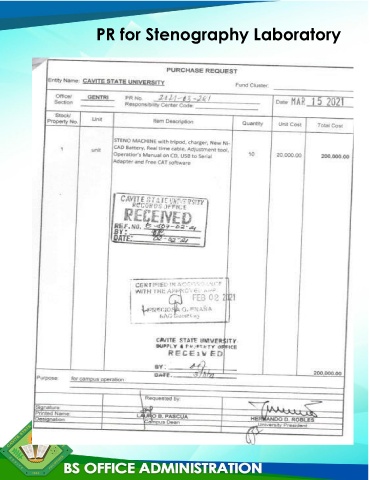 PR for Stenography Laboratory
PURCHASE REQUEST
Entity Name: CAVITE STATE UNIVERSITY
Fund Cluster:
Office/
Section
GENTRI
PR No.
Responsibility Center Code:
Date: MAR 15 2021
Stock/
Property No.
Unit
Item Description
Quantity
Unit Cost
Total Cost
1
unit
STENO MACHINE with tripod, charger, New Ni-
CAD Battery, Real time cable, Adjustment tool,
Operator's Manual on CD, USB to Serial
Adapter and Free CAT software
10
20,000.00
200,000.00
CAVITE STATE UNIVERSITY
RECORDS OFFICE
RECEIVED
REF. NO.
BY:
DATE:
CERTIFIED IN ACCORDANCE
WITH THE APPROVED
FEB 02 2021
CAVITE STATE UNIVERSITY
SUPPLY & PROPERTY OFFICE
RECEIVED
BY:
DATE
200,000.00
Purpose:
for campus operation
Requested by
Signature
Printed Name:
LAURO B. PASCUA
HERNANDO D. ROBLES
Designation:
Campus Dean
University President
BS OFFICE ADMINISTRATION